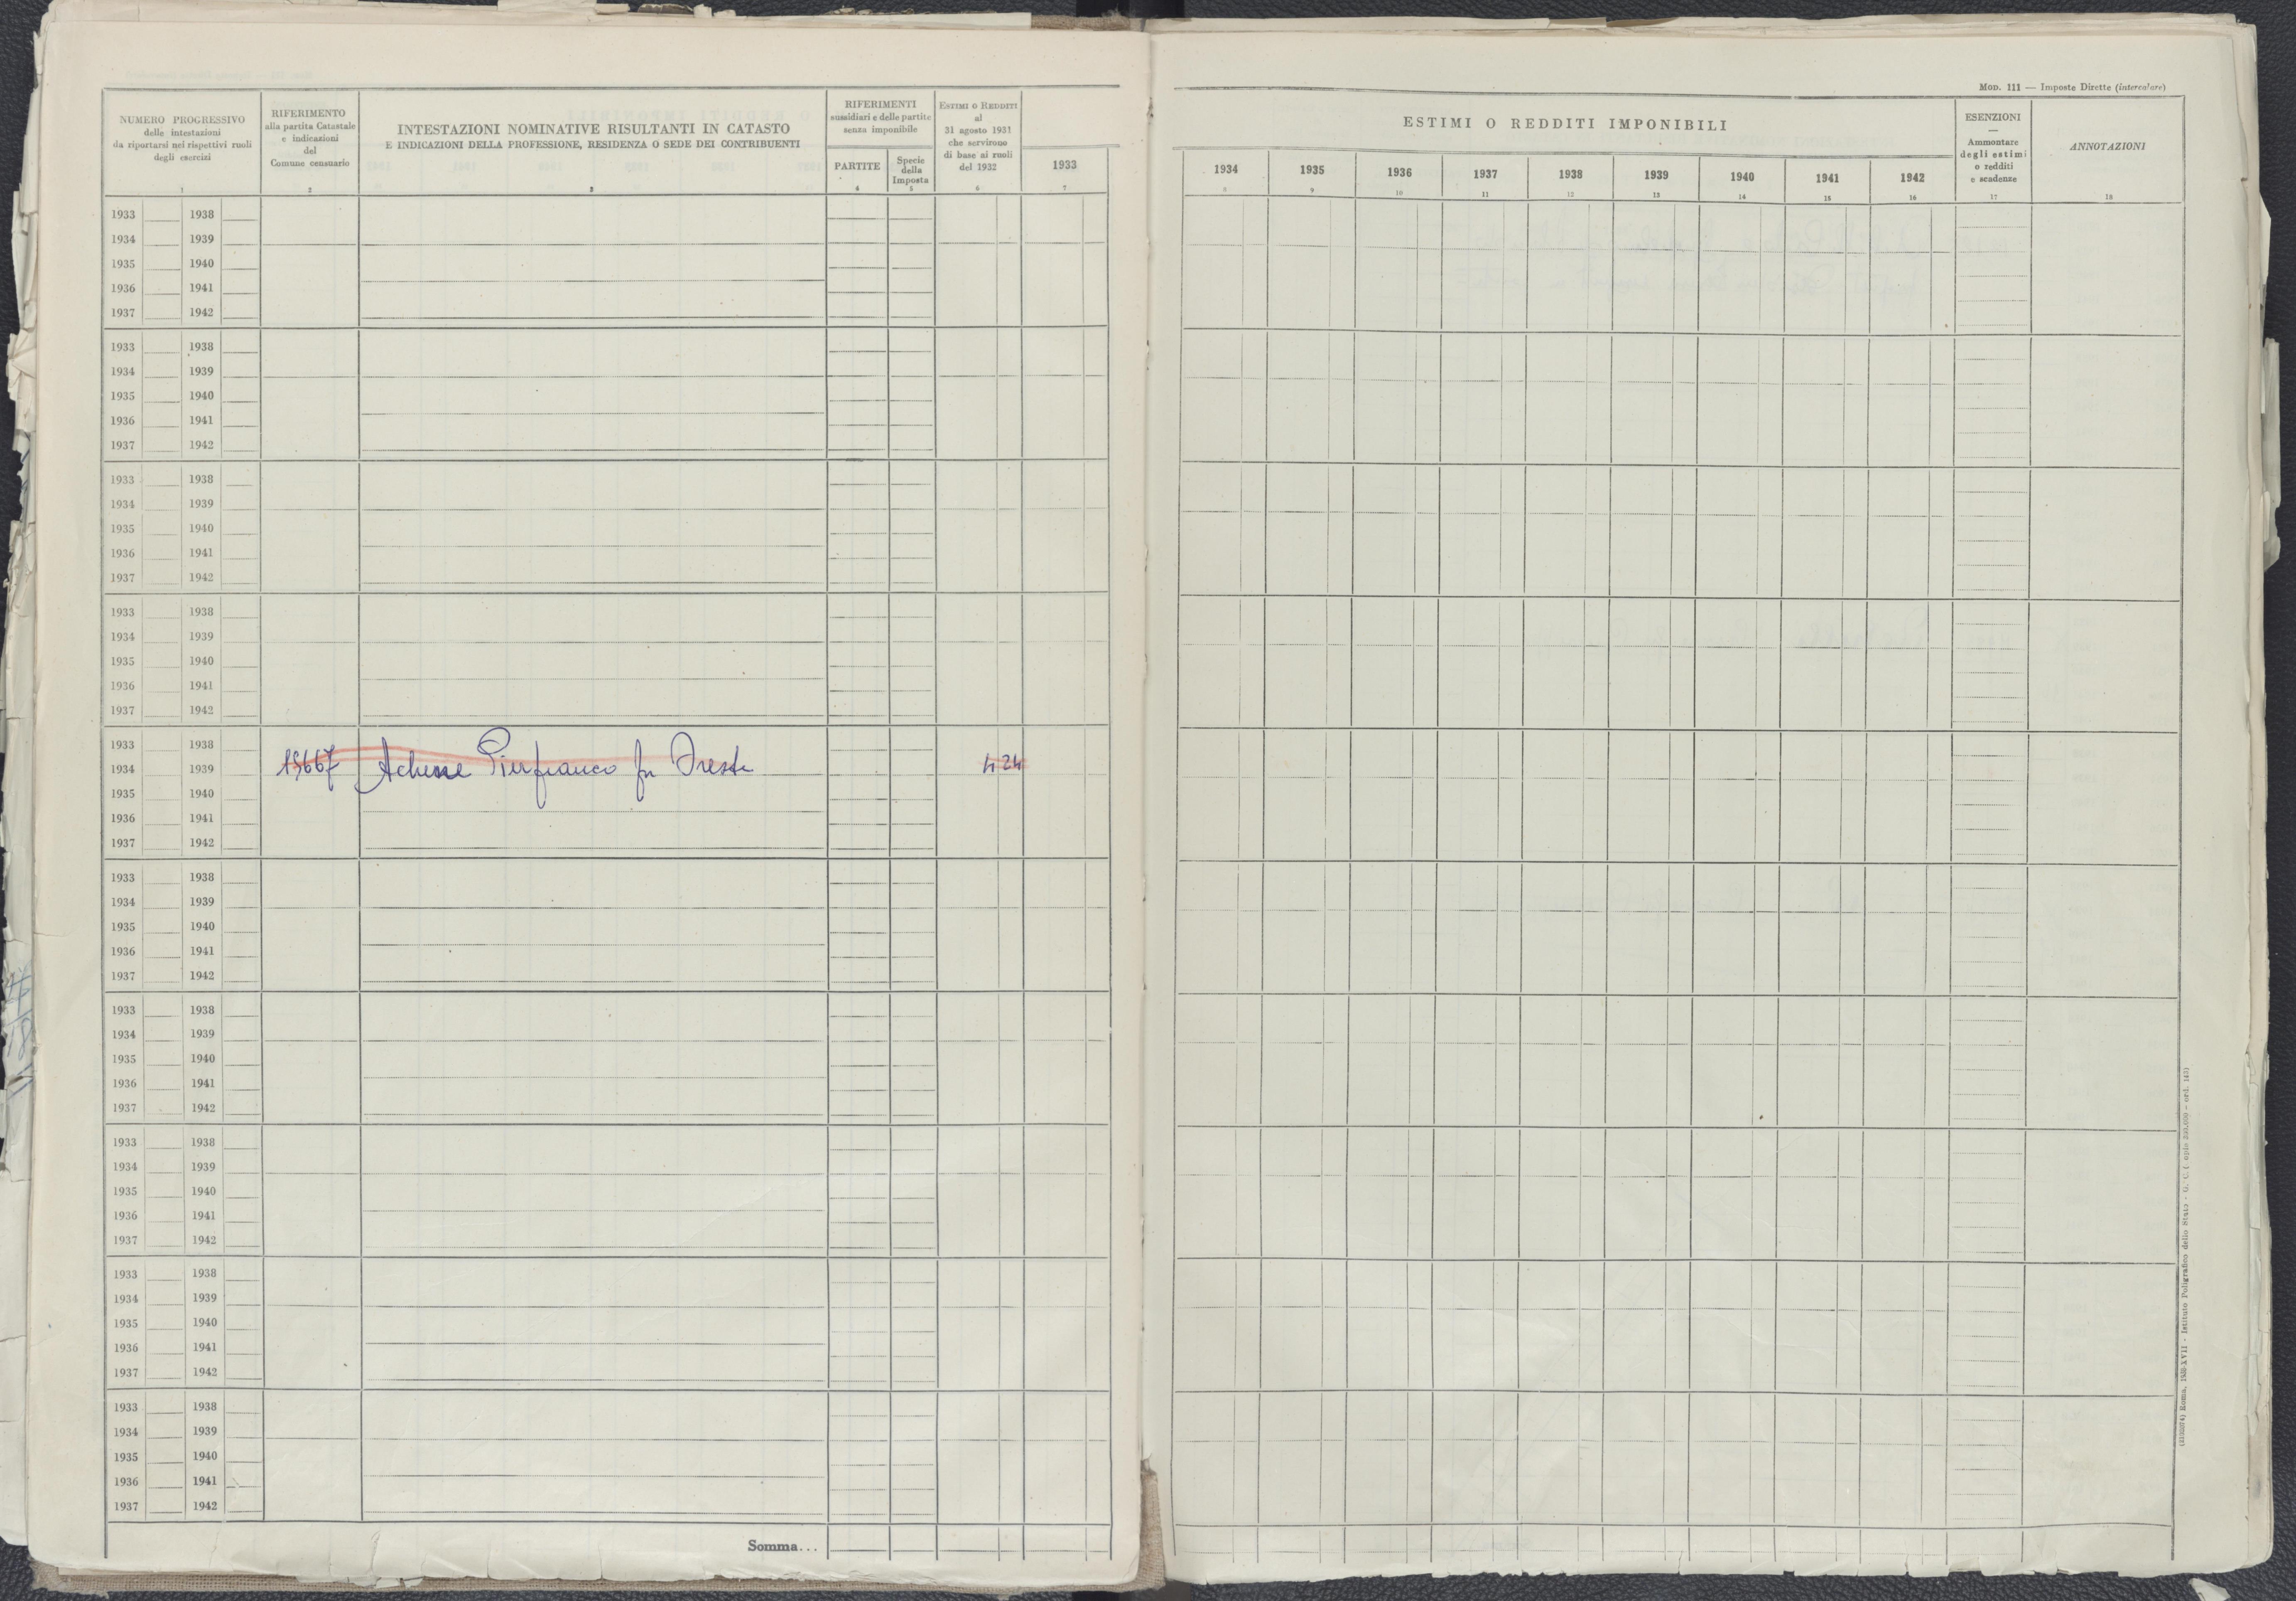 NUMERO PROGRESSIVO
delle intestazioni
da riportarsi nei rispettivi ruoli
degli esercizi
1
RIFERIMENTO
alla partita Catastale
e indicazioni
del
Comune censuario
2
INTESTAZIONI NOMINATIVE RISULTANTI IN CATASTO
E INDICAZIONI DELLA PROFESSIONE, RESIDENZA O SEDE DEI CONTRIBUENTI
3
RIFERIMENTI
sussidiari e delle partite
senza imponibile
PARTITE
4
Specie
della
Imposta
5
ESTIMI O REDDITI
al
31 agosto 1931
che servirono
di base ai ruoli
del 1932
6
1933
7
MOD. 111 — Imposte Dirette (intercalare)
ESTIMI O REDDITI IMPONIBILI
1934 1935 1936 1937 1938 1939 1940 1941 1942
8 9 10 11 12 13 14 15 16
ESENZIONI
—
Ammontare
degli estimi
o redditi
e scadenze
17
ANNOTAZIONI
18
1933 1938
1934 1939
1935 1940
1936 1941
1937 1942
1933 1938
1934 1939
1935 1940
1936 1941
1937 1942
1933 1938
1934 1939
1935 1940
1936 1941
1937 1942
1933 1938
1934 1939
1935 1940
1936 1941
1937 1942
1933 1938
1934 1939 Pierfranco fu Oreste 424
1935 1940
1936 1941
1937 1942
1933 1938
1934 1939
1935 1940
1936 1941
1937 1942
1933 1938
1934 1939
1935 1940
1936 1941
1937 1942
1933 1938
1934 1939
1935 1940
1936 1941
1937 1942
1933 1938
1934 1939
1935 1940
1936 1941
1937 1942
1933 1938
1934 1939
1935 1940
1936 1941
1937 1942
Somma...
Roma, 1938-XVII - Istituto Poligrafico dello Stato - G. C.